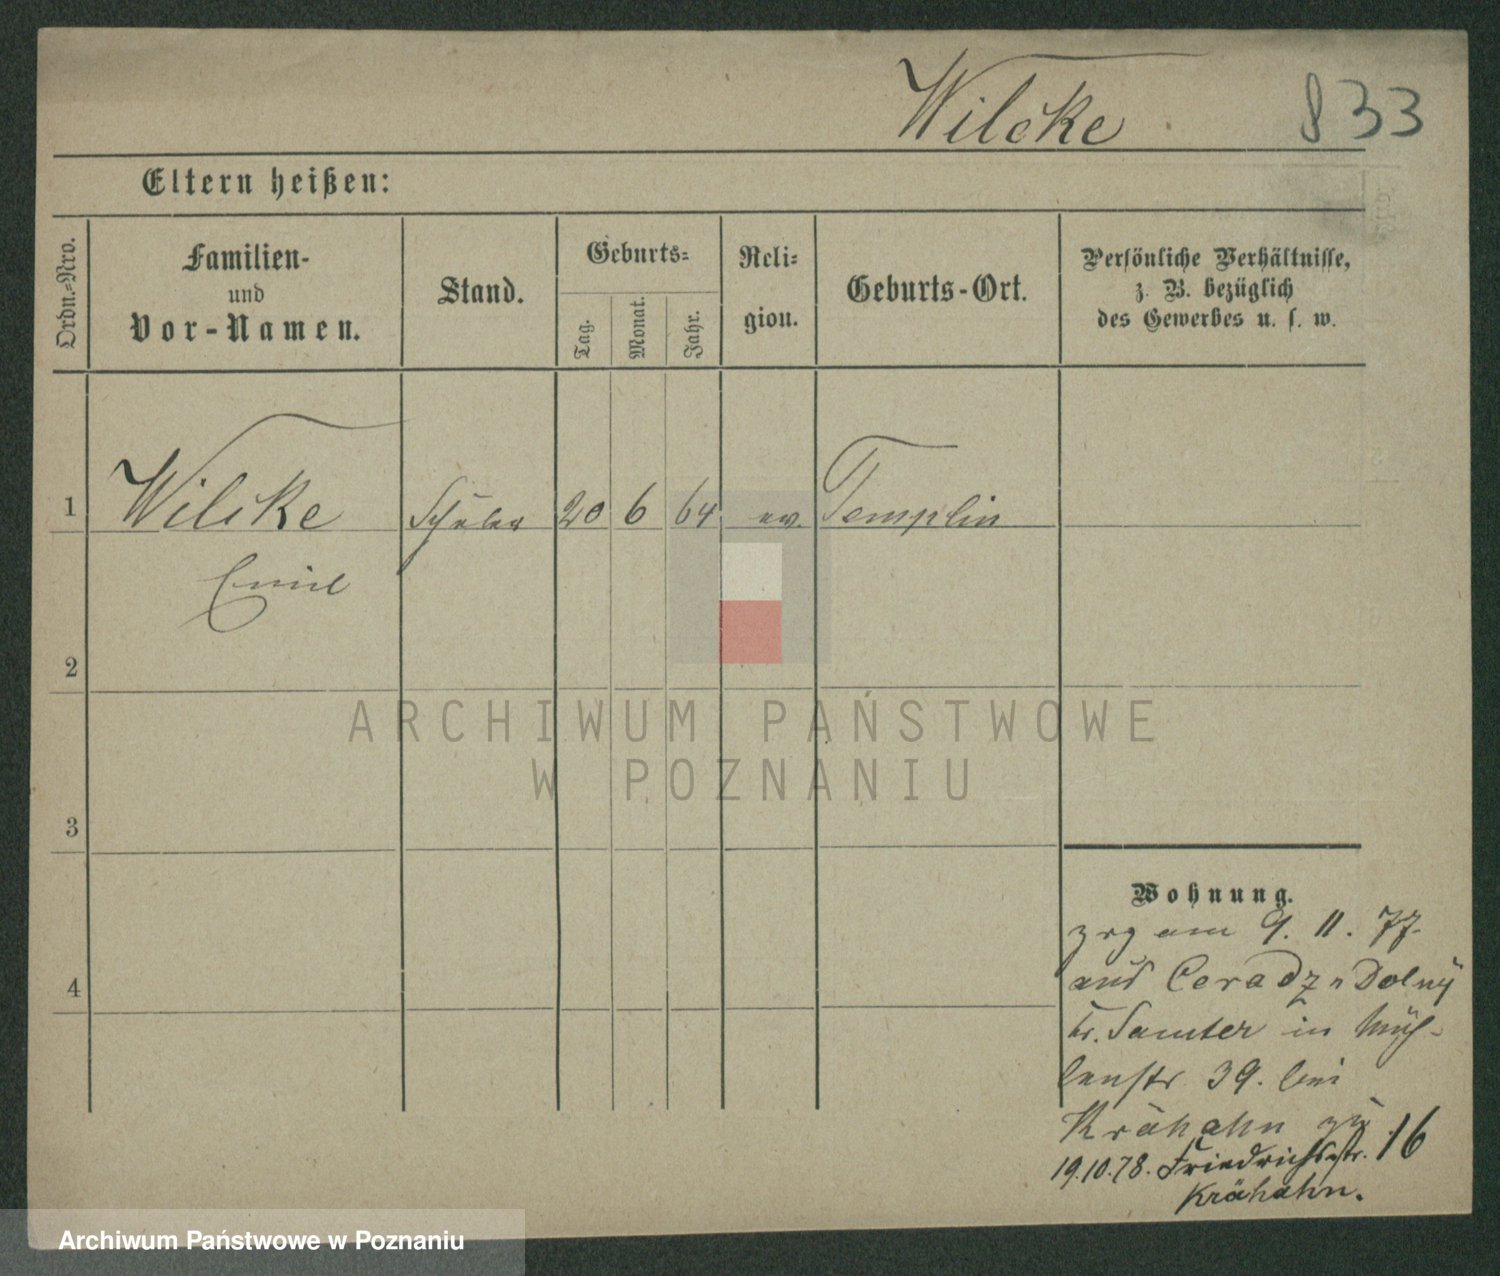 Wilcke 833
Eltern heißen:
Ordn.-Nro.
Familien-
und
Vor-Namen.
Stand.
Geburts-
Tag.
Monat.
Jahr.
Reli-
gion.
Geburts-Ort.
Persönliche Verhältnisse,
z. B. bezüglich
des Gewerbes u. s. w.
1 Wilcke Schüler 20 6 64 ev. Templin
Emil
2
3
4
Wohnung.
zrg am 9. 11. 77.
aus Ceradz Dolny
Kr. Samter in Müh-
lenstr 39. bei
Krähahn zu
19.10.78. Friedrichsstr. 16
Krähahn.
ARCHIWUM PAŃSTWOWE
W POZNANIU
Archiwum Państwowe w Poznaniu